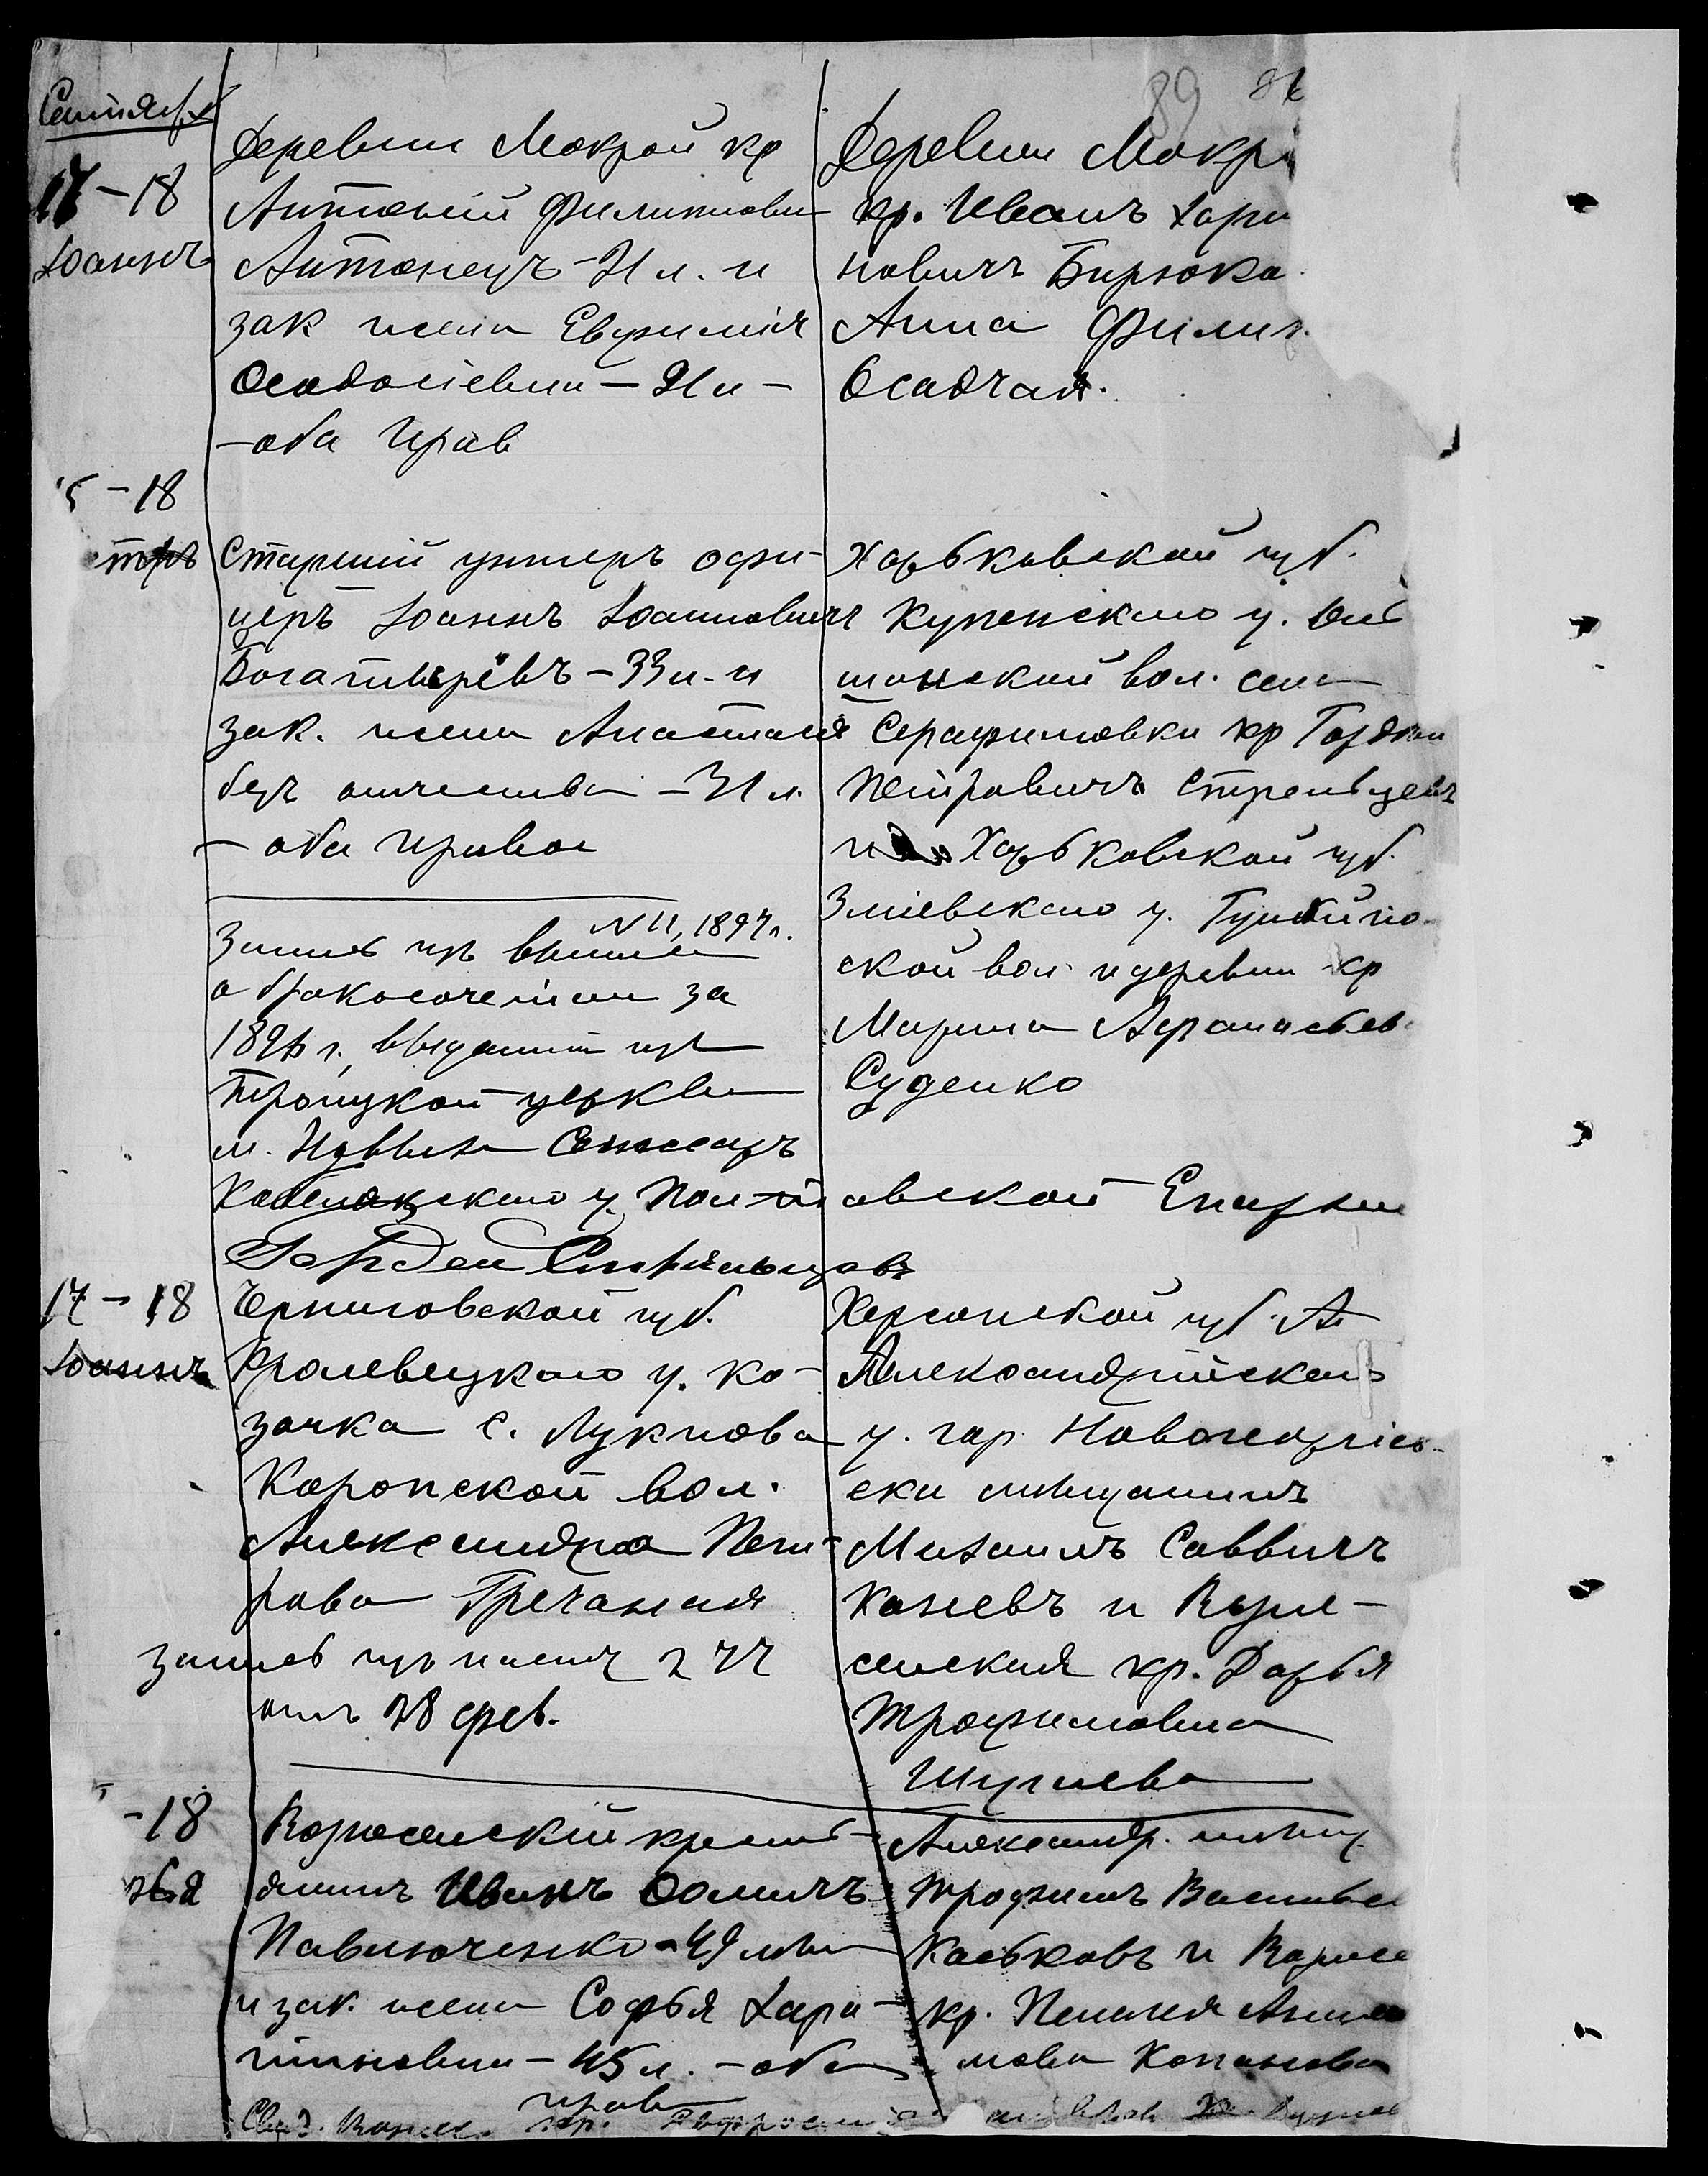 89
Сентябрь
17-18
Іоаннъ
Деревни Мокрой кр
Антоній Филиппови
Антонецъ - 21 л. и
зак жена Евфимія
Ѳеодосіевна - 21 л -
- оба прав
Деревни Мокр
кр. Иванъ Хари
новичъ Бирюко
Анна Филип
Осадчая.
5-18
Старшій унтеръ офи-
церъ Іоаннъ Іоанновичъ
Богатырёвъ - 33 л. и
зак. жена Анастасія
безъ отчества - 31 л.
- оба правос
Харьковской губ.
Купенскаго у.
шанской вол. села
Серафимовки кр Гордѣй
Петровичъ Стрельцевъ
и Харьковской губ.
Зміевскаго у.
ской вол деревни кр
Марина Афанасьев
Суденко
N 11, 1897 г.
Запись изъ выписи
о бракосочетаніи за
1896 г. выданной изъ
Троицкой церкви
м. Новыхъ Сенжаръ
Кобелякскаго у. Полтавской Епархіи
Гордей Стрельцовъ
17-18
Іоаннъ
Черниговской губ.
Кролевецкаго у. ко-
зачка с. Лукнова
Коропской вол.
Александра Пет-
рова Гречаная
запись изъ паспорта 277
отъ 28 фев.
Херсонской губ. А
Александрійскаго
у. гор. Новогеоргіев-
ска мѣщанинъ
Михаилъ Саввичъ
Каневъ и Возне-
сенская кр. Дарья
Трофимовна
Шугаева
-18
Вознесенскій кресть-
янинъ Иванъ Ѳомичъ
Павлюченко - 49 лѣтъ
и зак. жена Софья Хари-
тоновна - 45 л. - оба
прав
Александр. мѣщ
Трофимъ Васильев
Каськовъ и Вознес
кр. Пелагея Аким
мова Копанева
Свид. Вознес. кр.